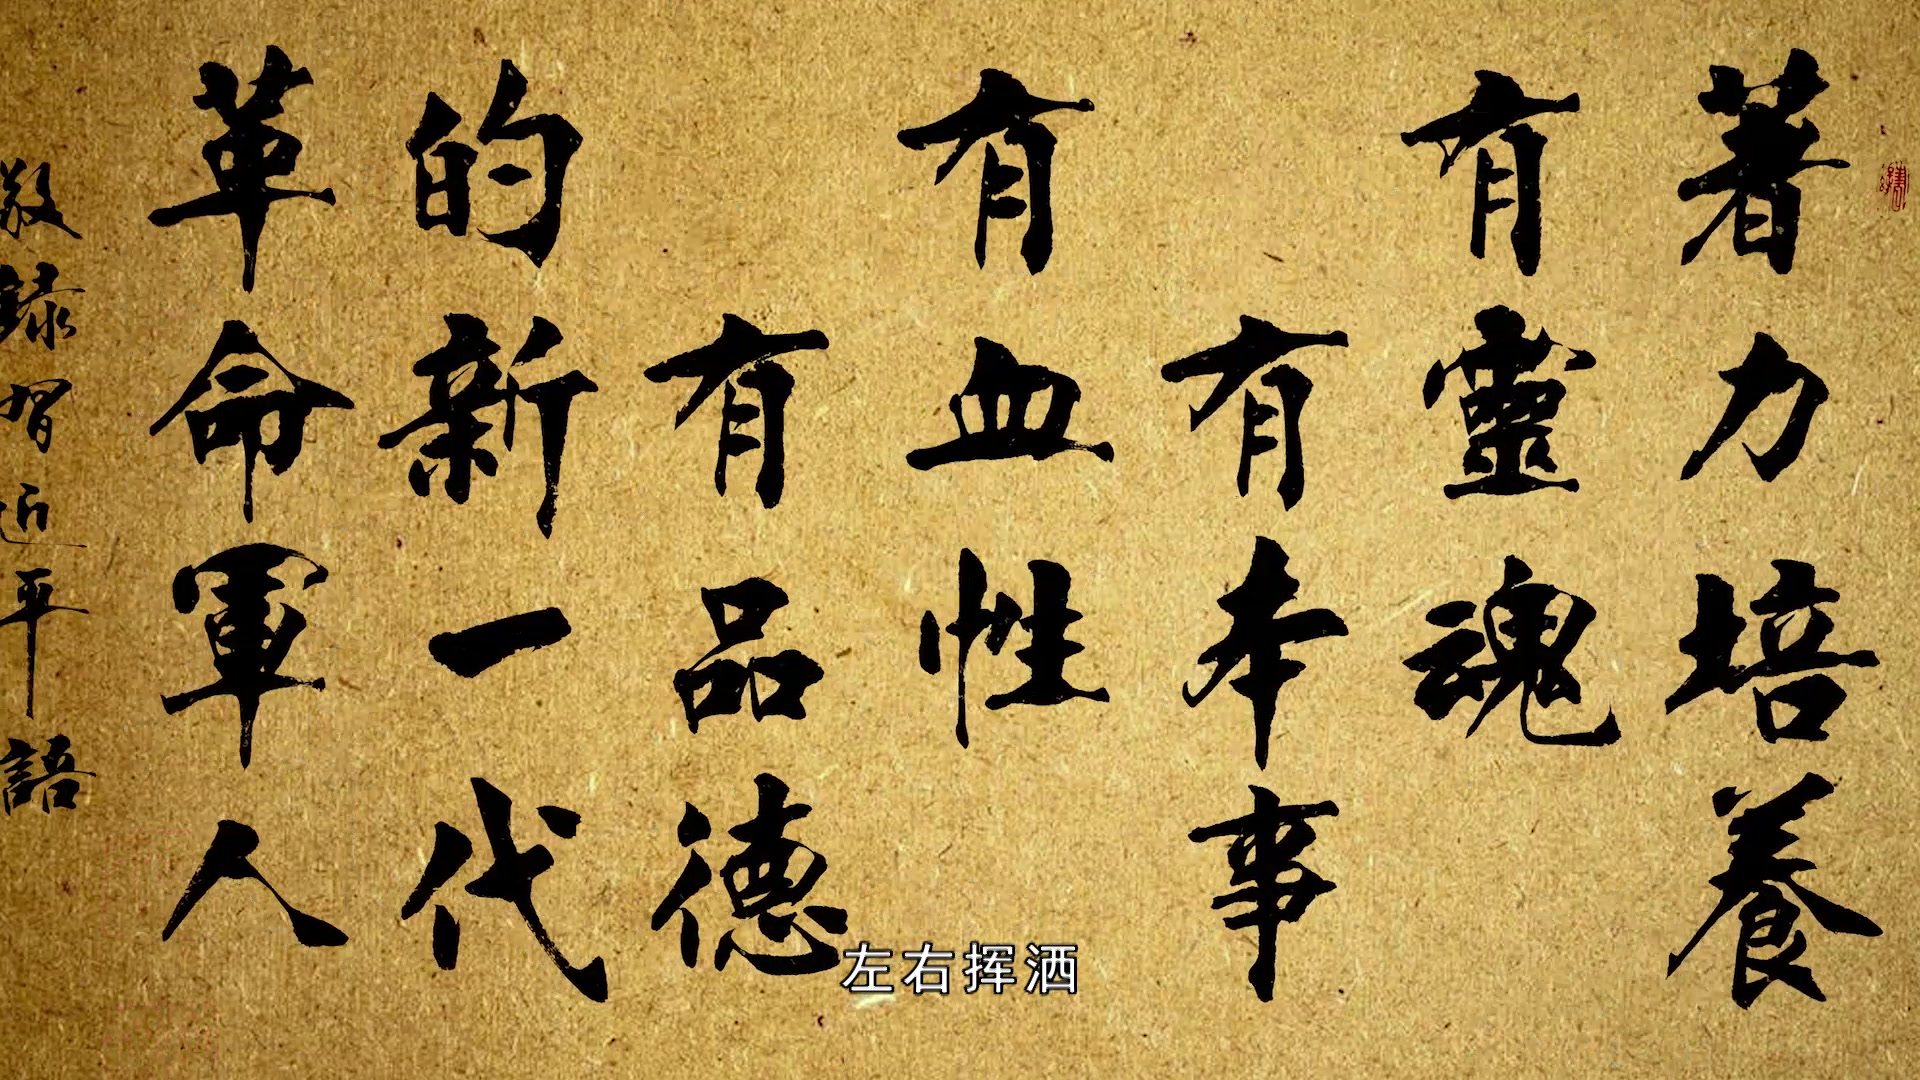 著力培養
有靈魂
有本事
有血性
有品德
的新一代
革命軍人
敬録習近平語
左右挥洒